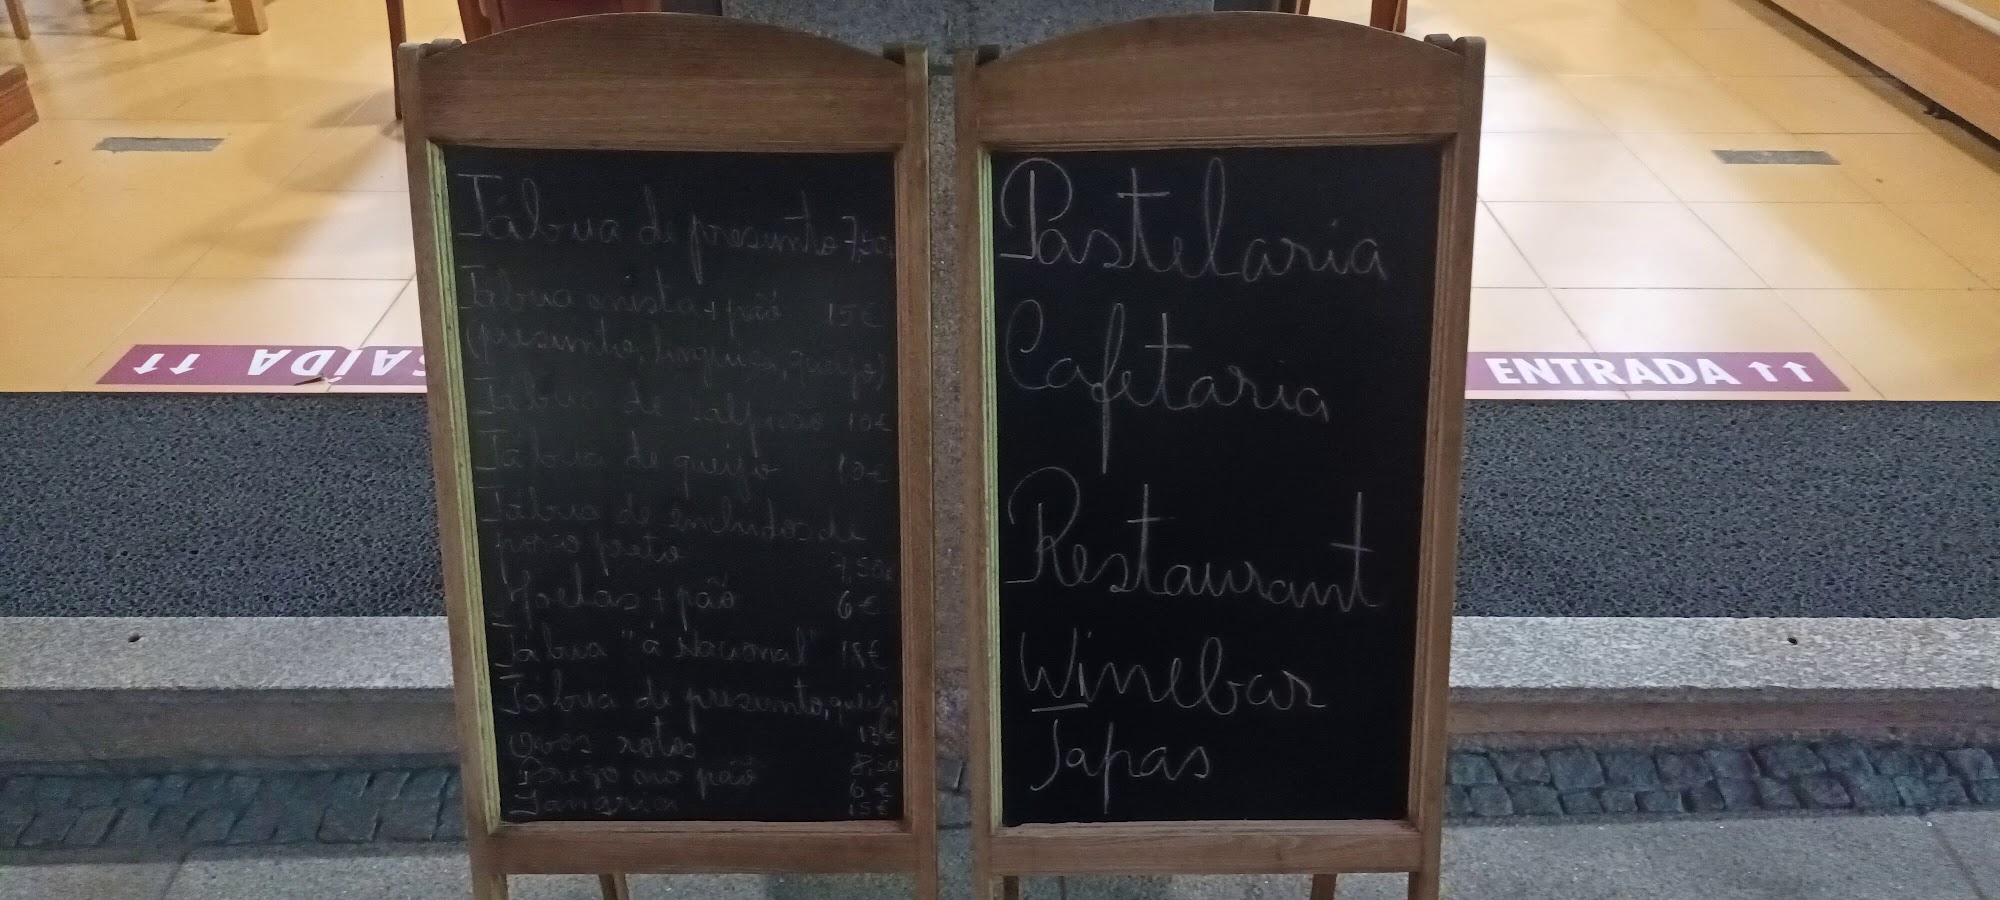 Tábua de presunto 7,50
Tábua mista + pão 15€
(presunto, linguiça, queijo)
Tábua de salpicão 10€
Tábua de queijo 10€
Tábua de enchidos de
porco preto 7,50€
Moelas + pão 6€
Tábua "á Nacional" 18€
Tábua de presunto, queijo
13€
Ovos rotos 8,50
Prego no pão 6€
Sangria 15€
Pastelaria
Cafetaria
Restaurant
Winebar
Tapas
SAÍDA
ENTRADA